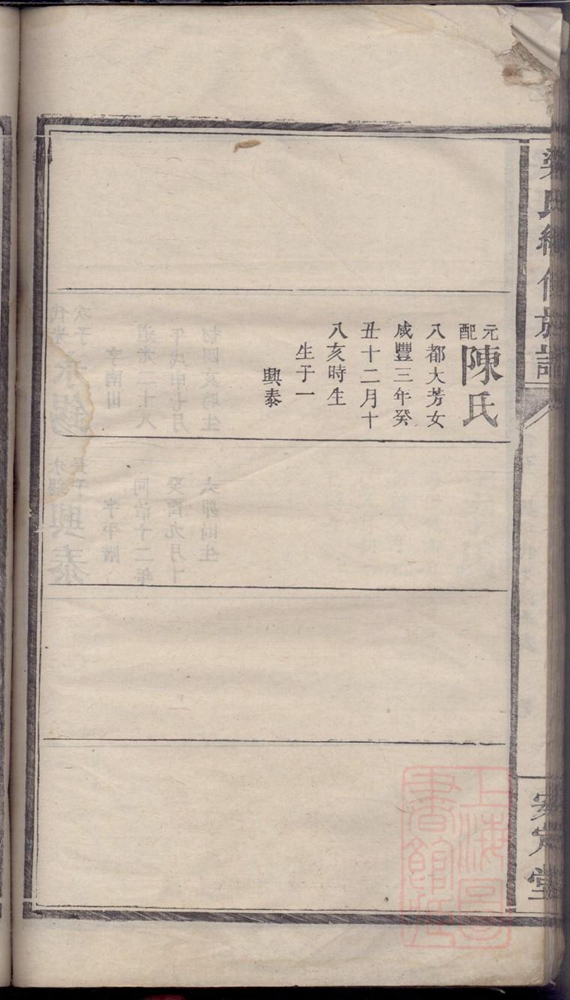 梁氏續修族譜
安定堂
元配陳氏
八都大芳女
咸豐三年癸
丑十二月十
八亥時生
生子一
興泰
上海圖
書館藏